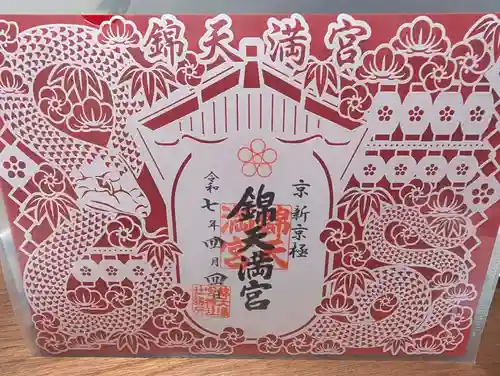 錦天満宮
京 新京極
錦天満宮
令和七年四月四日
錦天満宮